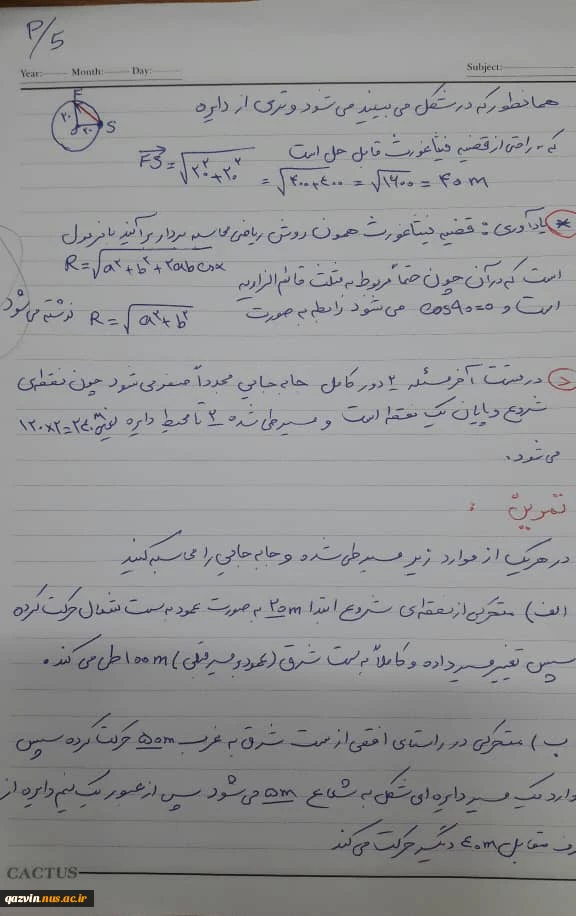 P/5
Year: Month: Day: Subject:
همانطور که در شکل می بینید می شود وتری از دایره
F
۲۰
۲۰
S
که به راحتی از قضیه فیثاغورث قابل حل است
FS = √۲۰² + ۲۰² = √۴۰۰+۴۰۰ = √۱۶۰۰ = ۴۰ m
* یادآوری : قضیه فیثاغورث همون روش ریاضی محاسبه بردار برآیند با فرمول
R = √a² + b² + ۲ab cosx
است که در آن چون حتماً مربوط به مثلث قائم الزاویه
است و cos۹۰=۰ می شود رابطه به صورت R = √a² + b² نوشته می شود
د) در قسمت آخر مسئله ۲ دور کامل جابه جایی مجدداً صفر می شود چون نقطه ی
شروع و پایان یک نقطه است و مسیر طی شده ۲ تا محیط دایره یعنی ۱۲۰×۲=۲۴۰m
می شود.
تمرین :
در هریک از موارد زیر مسیر طی شده و جابه جایی را محاسبه کنید
الف) متحرکی از نقطه ی شروع ابتدا ۲۵m به صورت عمود به سمت شمال حرکت کرده
سپس تغییر مسیر داده و کاملاً به سمت شرق (عمود بر مسیر قبلی) ۱۰۰m طی می کند.
ب) متحرکی در راستای افقی از سمت شرق به غرب ۵۰m حرکت کرده سپس
وارد یک مسیر دایره ای شکل به شعاع ۵m می شود پس از عبور یک نیم دایره از
طرف مقابل ۴۰m دیگر حرکت می کند
CACTUS
qazvin.nus.ac.ir